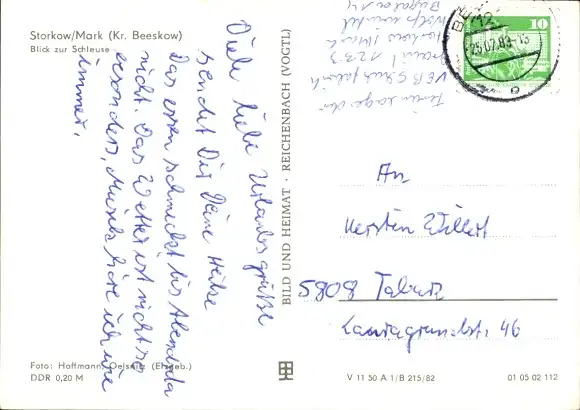 Storkow/Mark (Kr. Beeskow)
Blick zur Schleuse
Viele liebe Urlaubsgrüße
sendet Dir Deine Heike
Das essen schmeckt bis Abendbrot
nicht. Das Wetter ist nicht so
besonders, Musik höre ich wie
immer.
Foto: Hoffmann, Oelsnitz (Erzgeb.)
DDR 0,20 M
BILD UND HEIMAT · REICHENBACH (VOGTL)
Ferienlager der
VEB
1233
Storkow
10
25.07.83-13
An
Kersten Willert
5808 Tabarz
Lauchagrundstr. 46
V 11 50 A 1/B 215/82
01 05 02 112